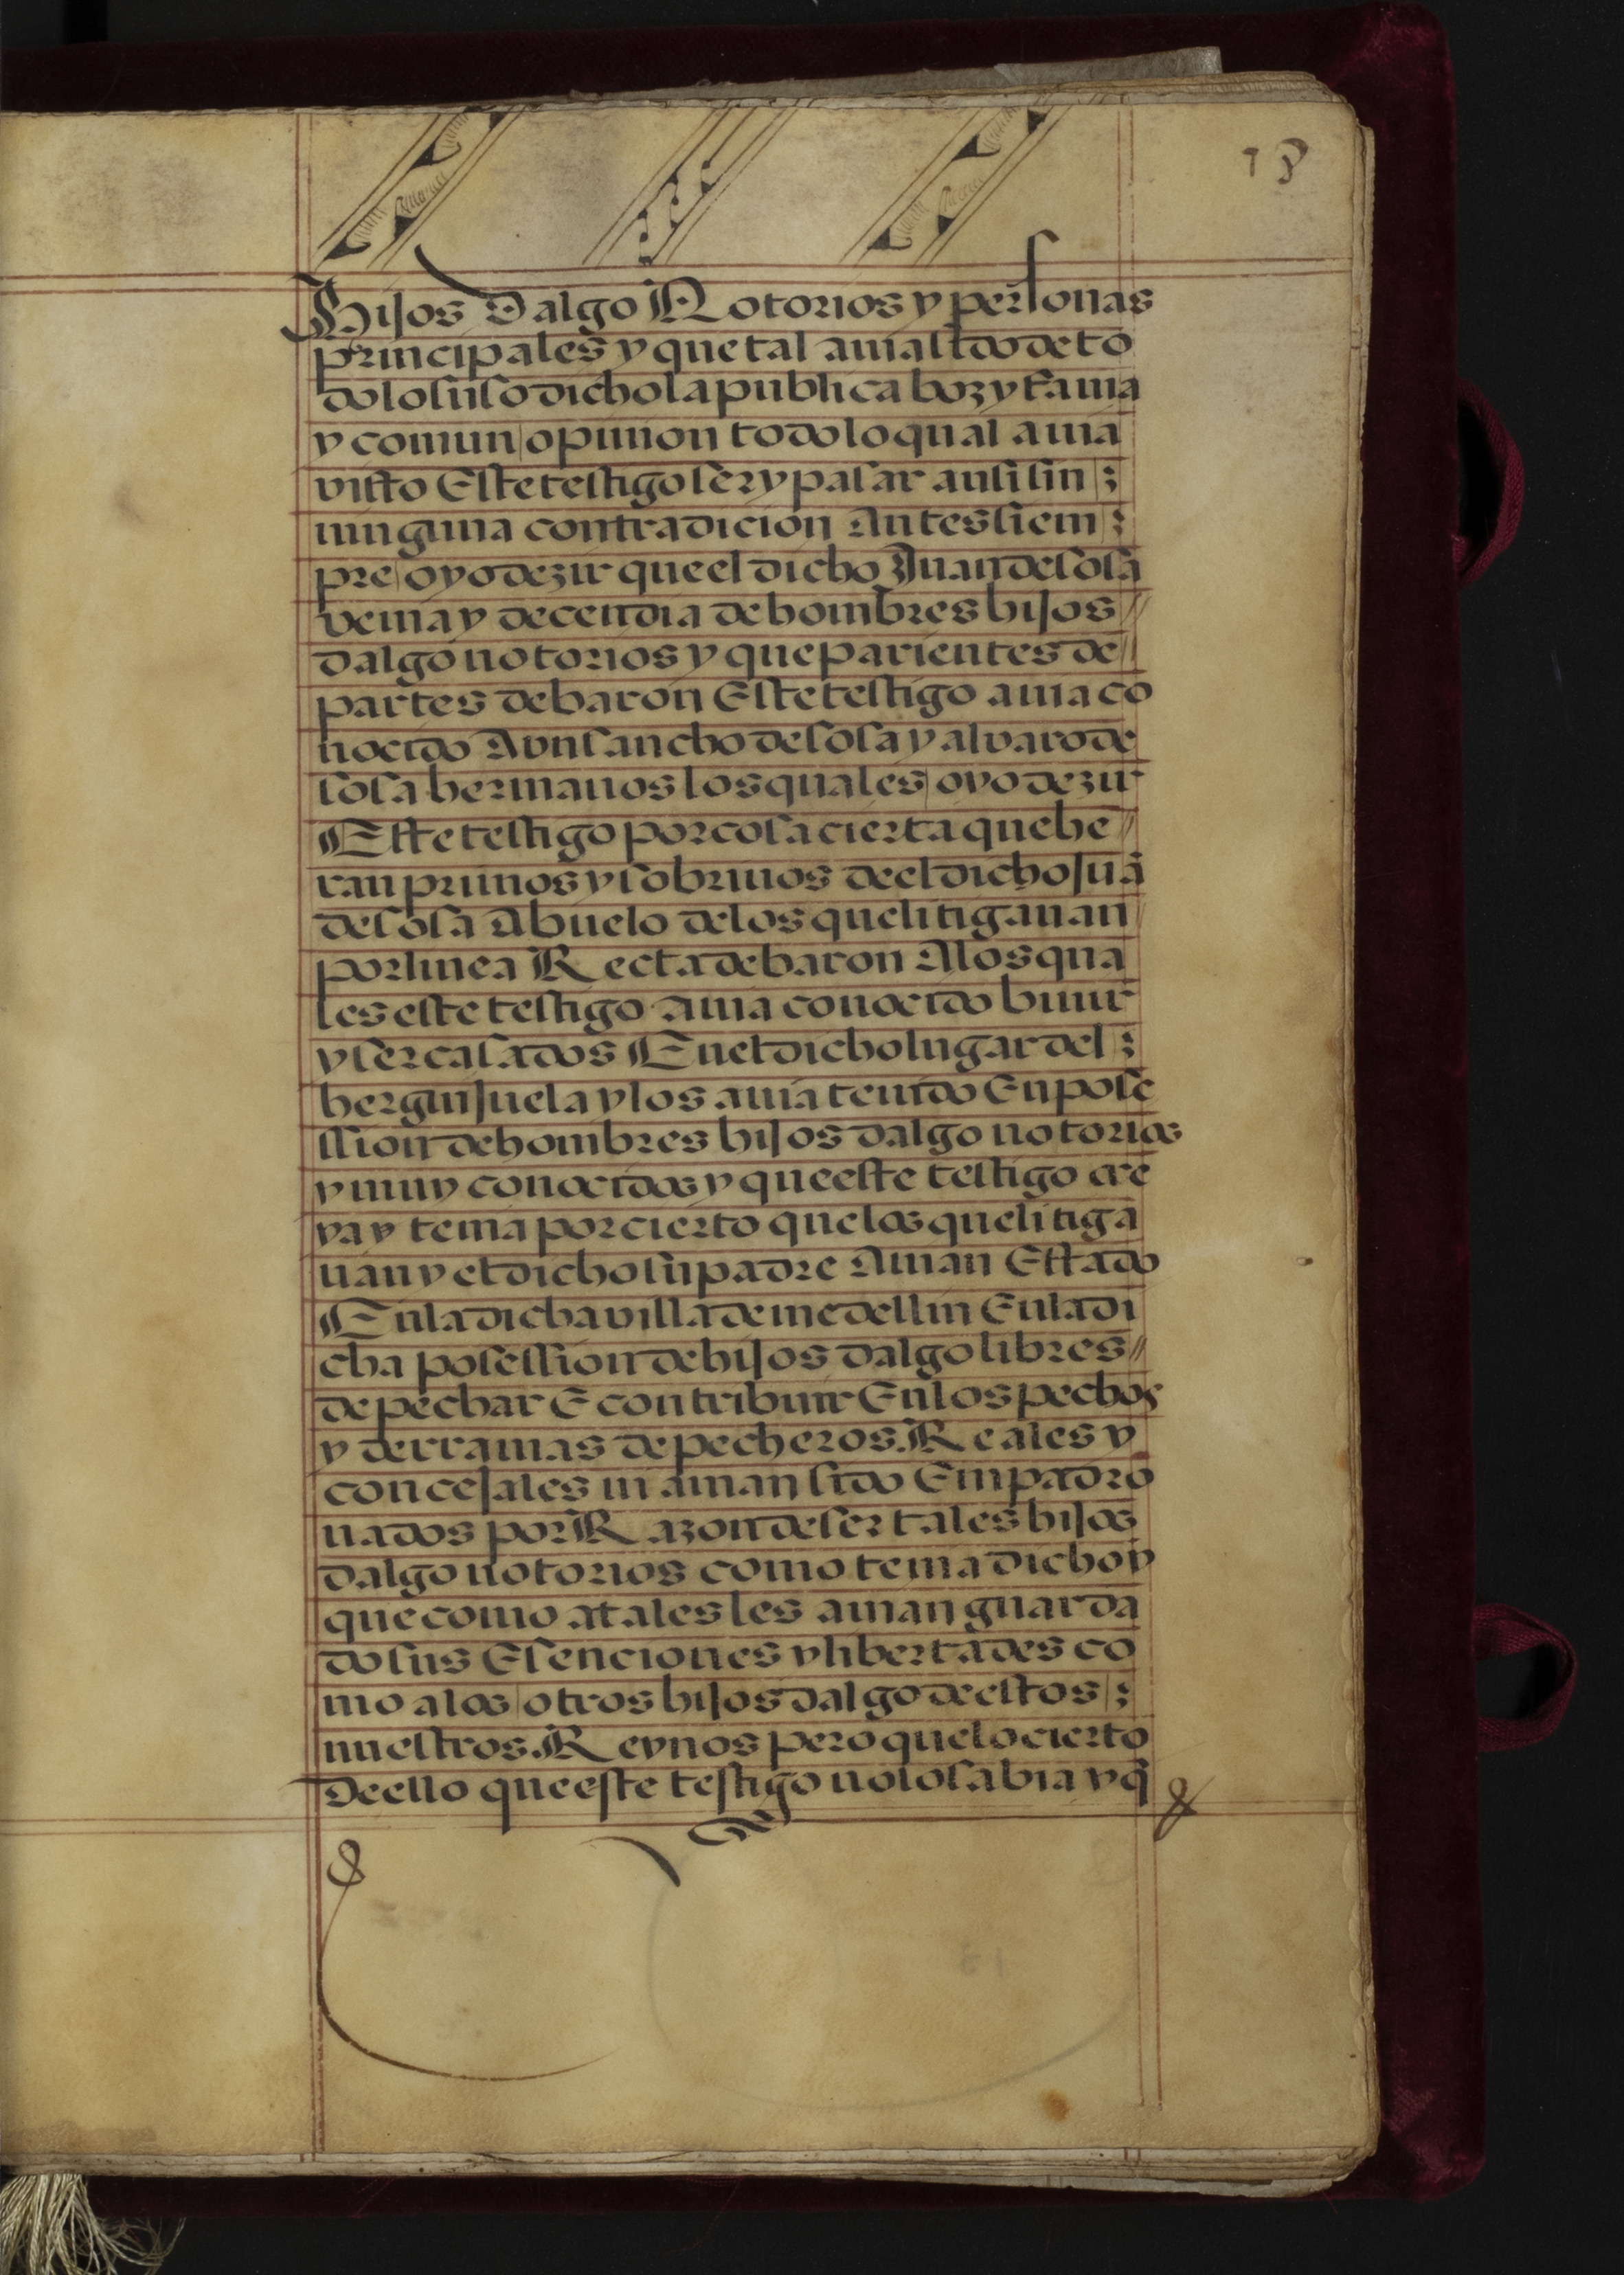 18
Hijos Dalgo Notorios y personas
principales y que tal auia sido de to
do lo suso dicho la publica boz y fama
y comun opinion todo lo qual auia
visto Este testigo ser y pasar ansi sin
ninguna contradicion Antes siem
pre oyo dezir que el dicho Juan de sosa
venia y decendia de hombres hijos
dalgo notorios y que parientes de
partes de baron Este testigo auia co
nocido A vn sancho de sosa y alvaro de
sosa hermanos los quales oyo dezir
Este testigo por cosa cierta que he
ran primos y sobrinos de el dicho juā
de sosa Abuelo de los que litigauan
por linea Recta de baron A los qua
les este testigo Auia conocido biuir
y ser casados En el dicho lugar del
berguijuela y los auia tenido En pose
ssion de hombres hijos dalgo notorios
y muy conocidos y que este testigo cre
ya y tenia por cierto que los que litiga
uan y el dicho su padre Auian Estado
En la dicha villa de medellin En la di
cha posession de hijos dalgo libres
de pechar E contribuir En los pechos
y derramas de pecheros Reales y
concejales ni auian sido Empadro
nados por Razon de ser tales hijos
dalgo notorios como tenia dicho y
que como a tales les auian guarda
do sus Esenciones y libertades co
mo a los otros hijos dalgo de estos
nuestros Reynos pero que lo cierto
De ello que este testigo no lo sabia y q̄